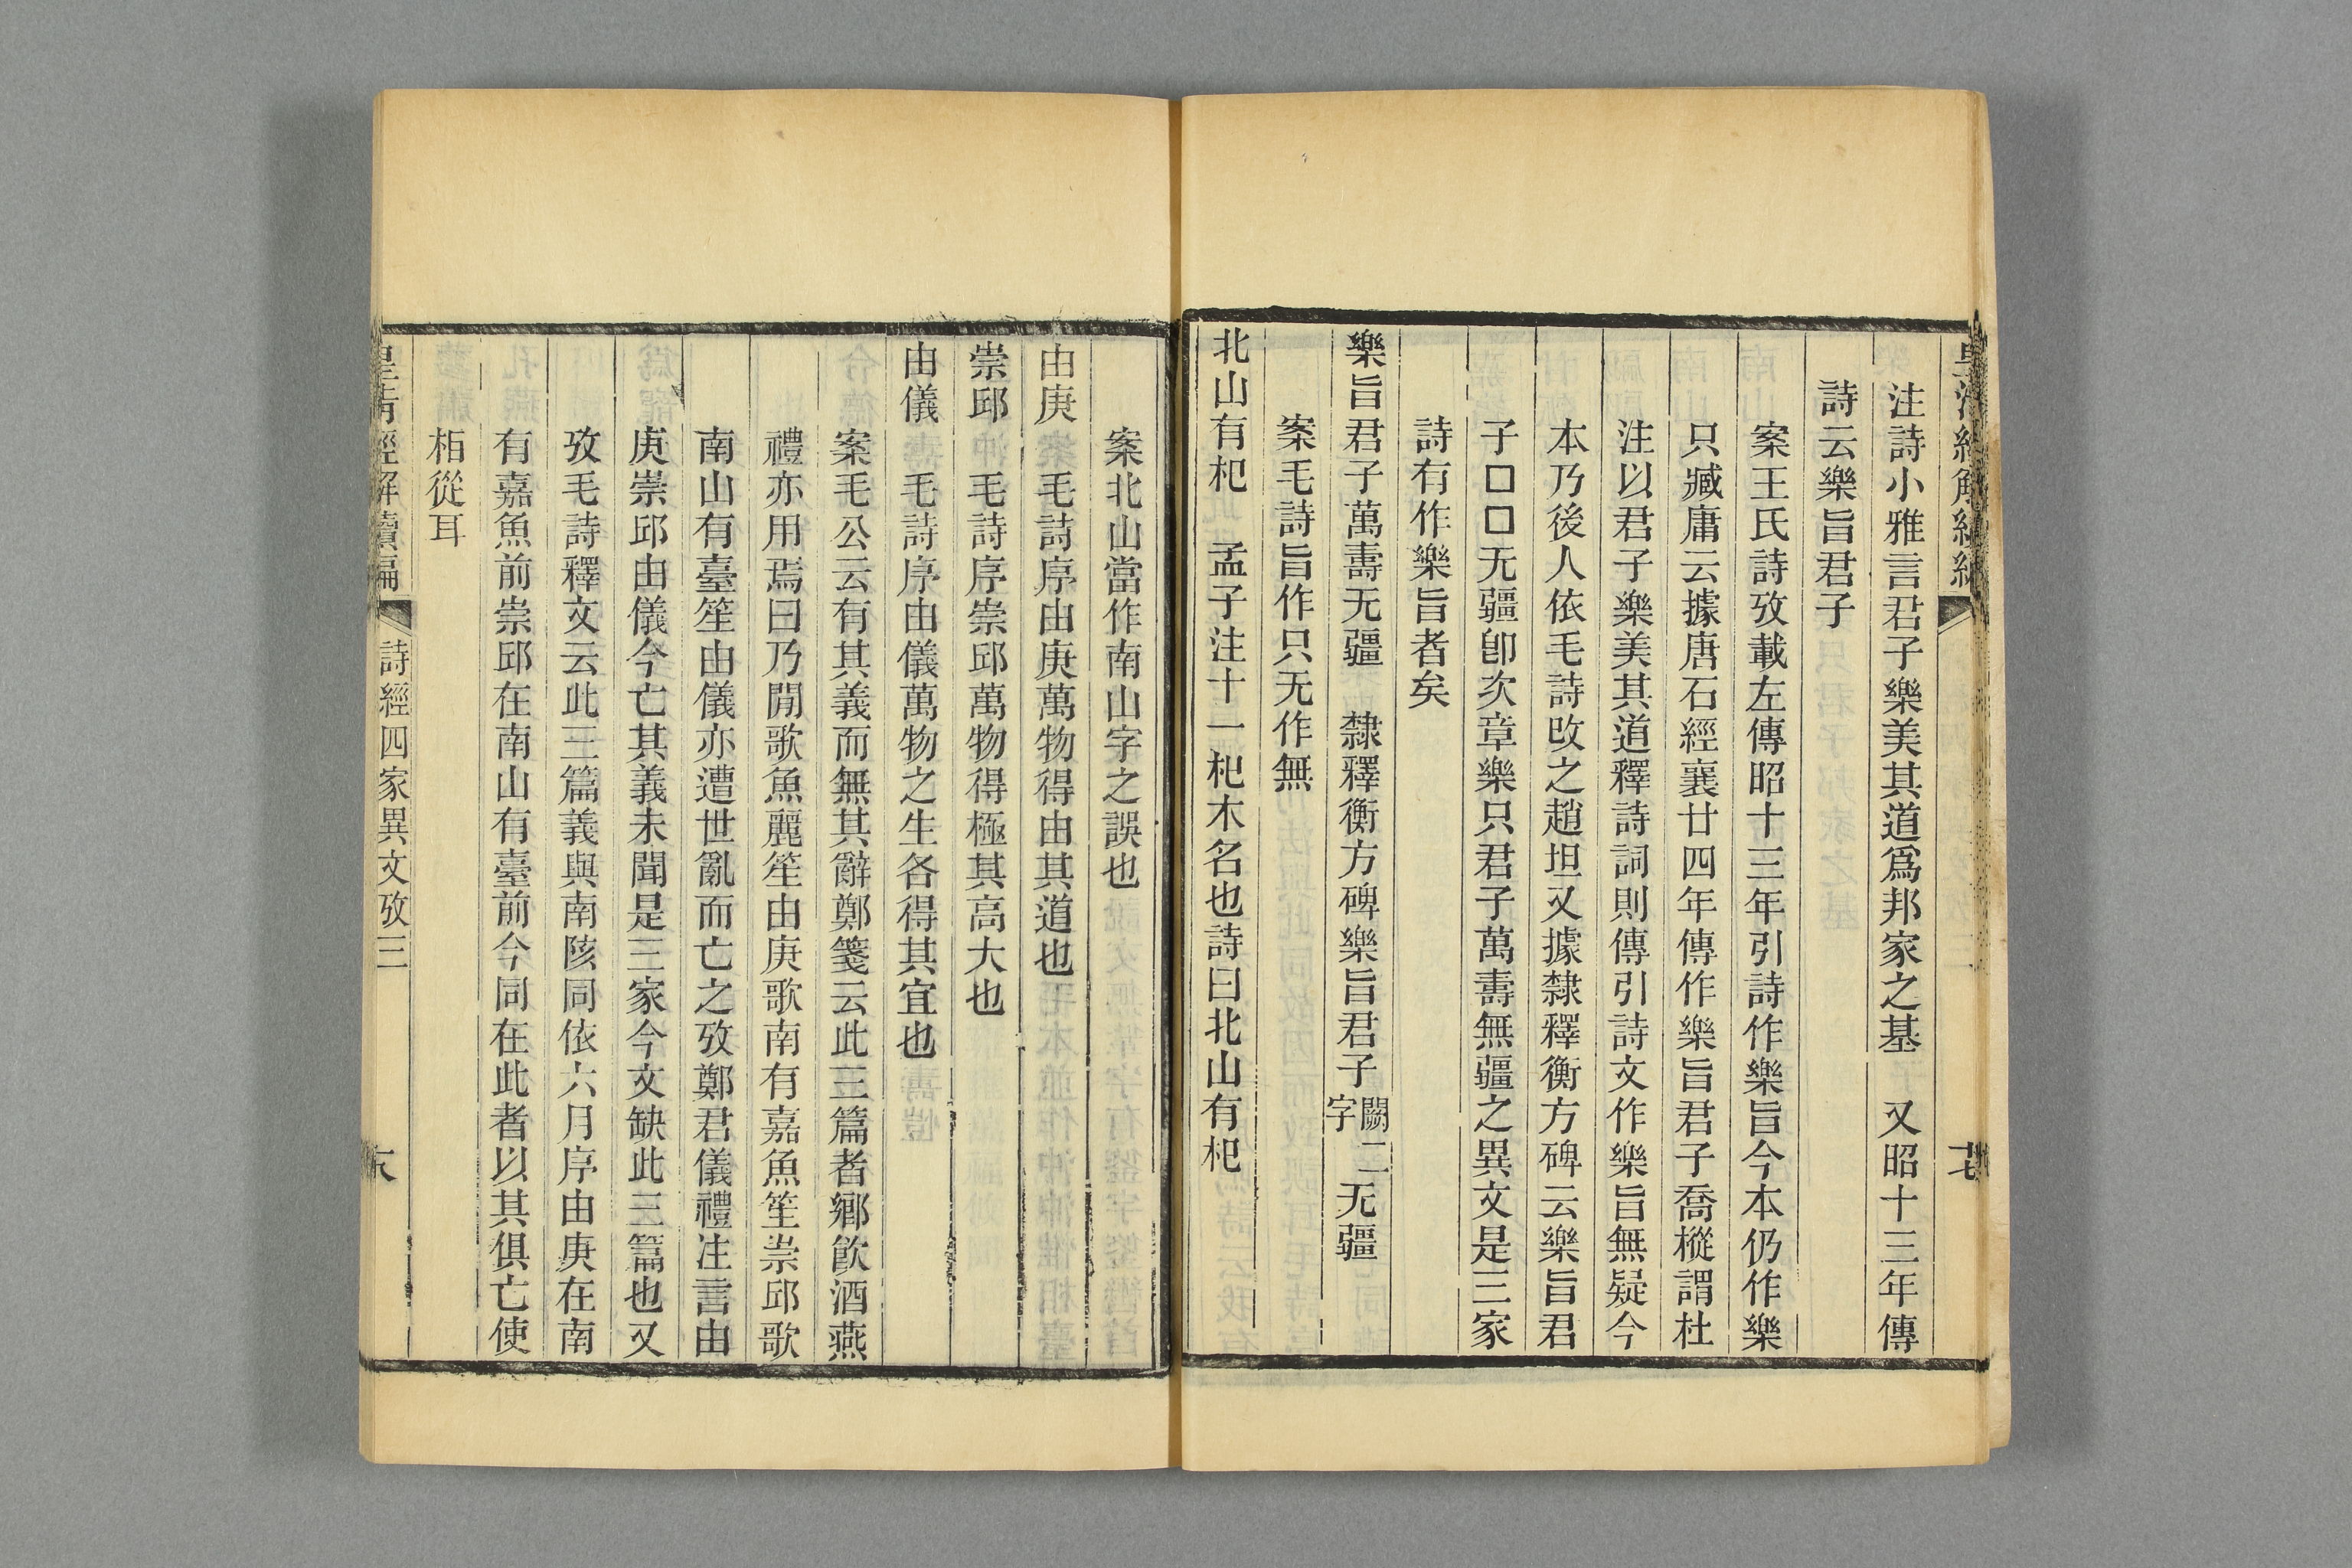 注詩小雅言君子樂美其道爲邦家之基　又昭十三年傳
詩云樂旨君子
案王氏詩攷載左傳昭十三年引詩作樂旨今本仍作樂
只臧庸云據唐石經襄廿四年傳作樂旨君子喬樅謂杜
注以君子樂美其道釋詩詞則傳引詩文作樂旨無疑今
本乃後人依毛詩改之趙坦又據隸釋衡方碑云樂旨君
子□□无疆卽次章樂只君子萬壽無疆之異文是三家
詩有作樂旨者矣
樂旨君子萬壽无疆　隸釋衡方碑樂旨君子闕二字无疆
案毛詩旨作只无作無
北山有杞　孟子注十一杞木名也詩曰北山有杞
案北山當作南山字之誤也
由庚　毛詩序由庚萬物得由其道也
崇邱　毛詩序崇邱萬物得極其高大也
由儀　毛詩序由儀萬物之生各得其宜也
案毛公云有其義而無其辭鄭箋云此三篇者鄉飮酒燕
禮亦用焉曰乃閒歌魚麗笙由庚歌南有嘉魚笙崇邱歌
南山有臺笙由儀亦遭世亂而亡之攷鄭君儀禮注言由
庚崇邱由儀今亡其義未聞是三家今文缺此三篇也又
攷毛詩釋文云此三篇義與南陔同依六月序由庚在南
有嘉魚前崇邱在南山有臺前今同在此者以其俱亡使
相從耳
皇淸經解續編　詩經四家異文攷三